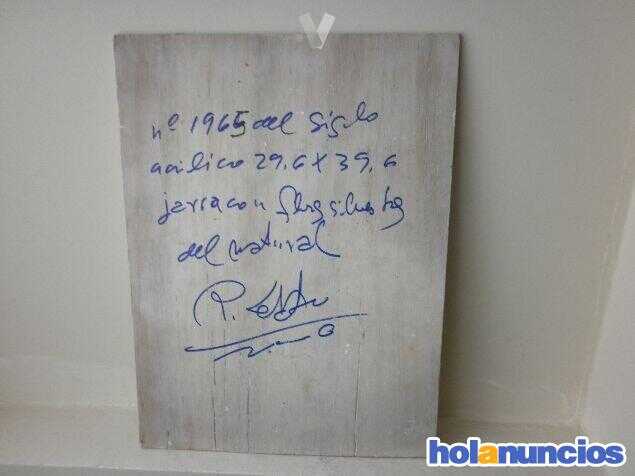 nº 1965 del Siglo
acrilico 29,6 x 39,6
jarra con
del natural
R.
holanuncios